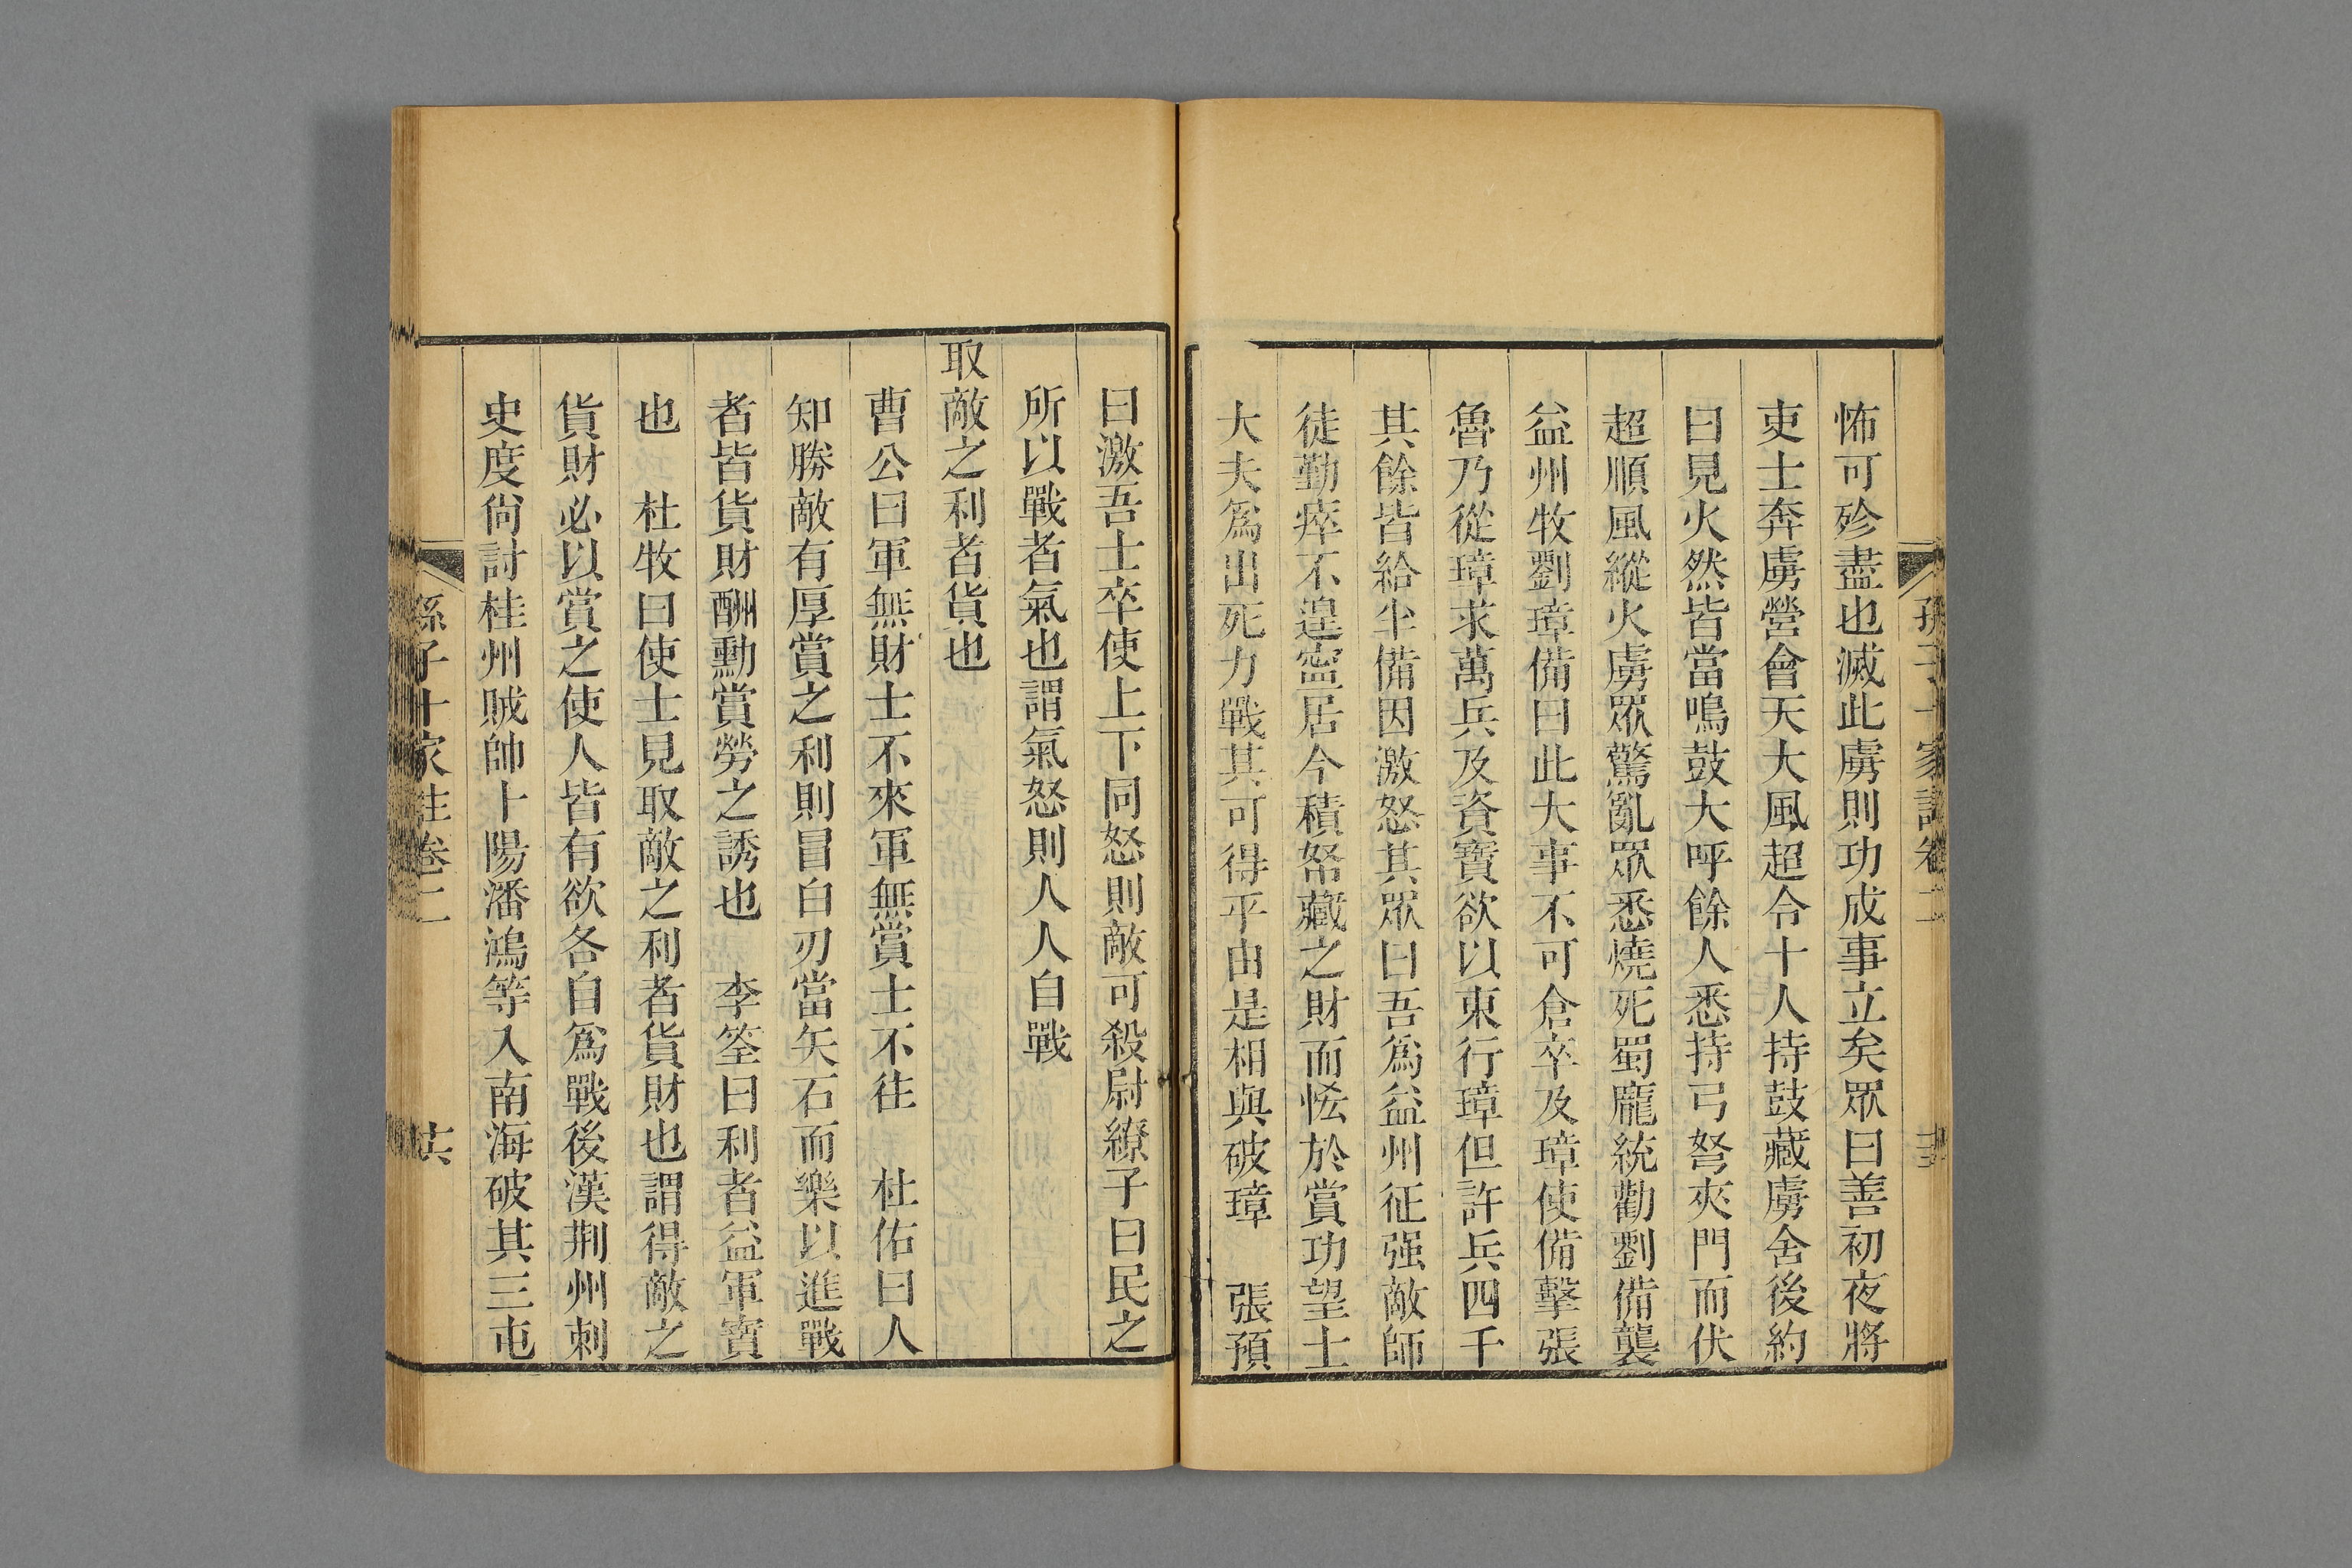 怖可殄盡也滅此虜則功成事立矣眾曰善初夜將
吏士奔虜營會天大風超令十人持鼓藏虜舍後約
曰見火然皆當鳴鼓大呼餘人悉持弓弩夾門而伏
超順風縱火虜眾驚亂眾悉燒死蜀龐統勸劉備襲
益州牧劉璋備曰此大事不可倉卒及璋使備擊張
魯乃從璋求萬兵及資寶欲以東行璋但許兵四千
其餘皆給半備因激怒其眾曰吾為益州征强敵師
徒勤瘁不遑寍居今積帑藏之財而恡於賞功望士
大夫為出死力戰其可得乎由是相與破璋　張預
曰激吾士卒使上下同怒則敵可殺尉繚子曰民之
所以戰者氣也謂氣怒則人人自戰
取敵之利者貨也
曹公曰軍無財士不來軍無賞士不往　杜佑曰人
知勝敵有厚賞之利則冒白刃當矢石而樂以進戰
者皆貨財酬勳賞勞之誘也　李筌曰利者益軍寶
也　杜牧曰使士見取敵之利者貨財也謂得敵之
貨財必以賞之使人皆有欲各自為戰後漢荆州刺
史度尚討桂州賊帥卜陽潘鴻等入南海破其三屯
孫子十家註卷二